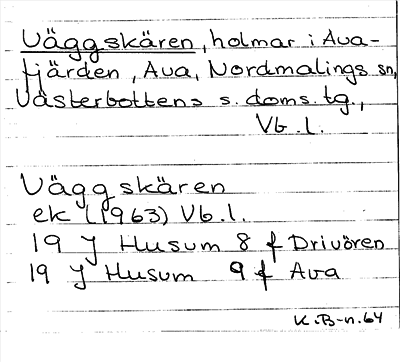 Väggskären, holmar i Ava-
fjärden, Ava, Nordmalings sn,
Västerbottens s. doms. tg.,
Vb. l.
Väggskären
ek (1963) Vb. l.
19 J Husum 8 f Drivören
19 J Husum 9 f Ava
K. B-n. 64